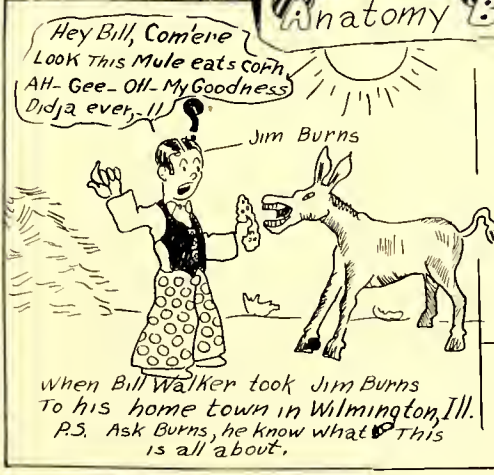 Anatomy
Hey Bill, Com'ere
Look This Mule eats corn,
AH- Gee- OH- My Goodness
Didja ever,-!!
?
Jim Burns
when Bill Walker took Jim Burns
To his home town in Wilmington, Ill.
P.S. Ask Burns, he know what This
is all about.